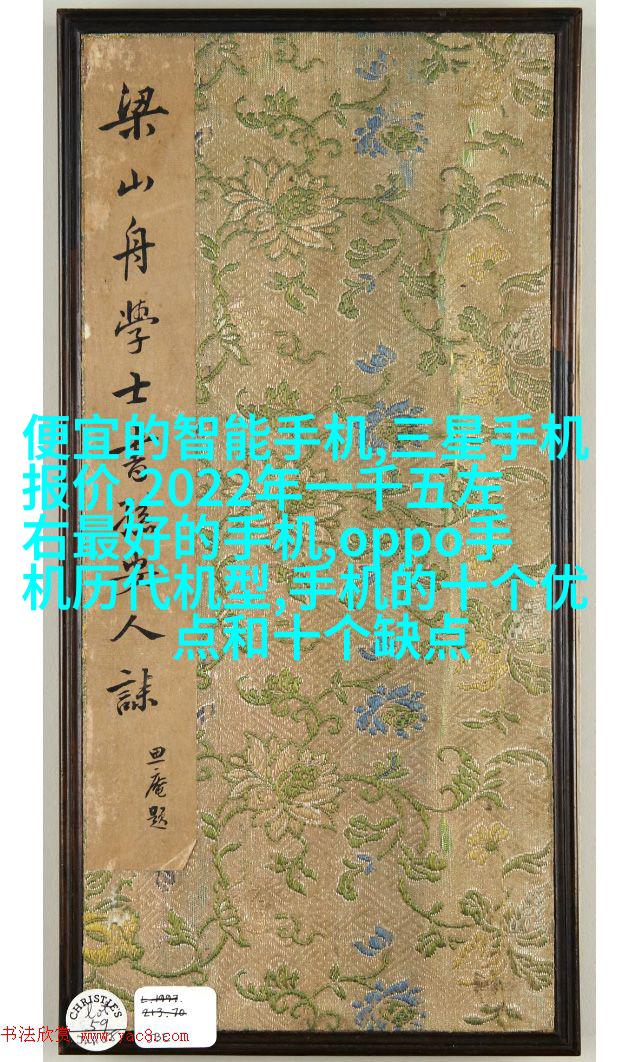 梁山舟學士書孫安人誄
庵題
便宜的智能手机,三星手机
报价,2022年一千五左
右最好的手机,oppo手
机历代机型,手机的十个优
点和十个缺点
CHRISTIE'S
Lot
59
L.1997.
213.70
书法欣赏 www.yac8.com